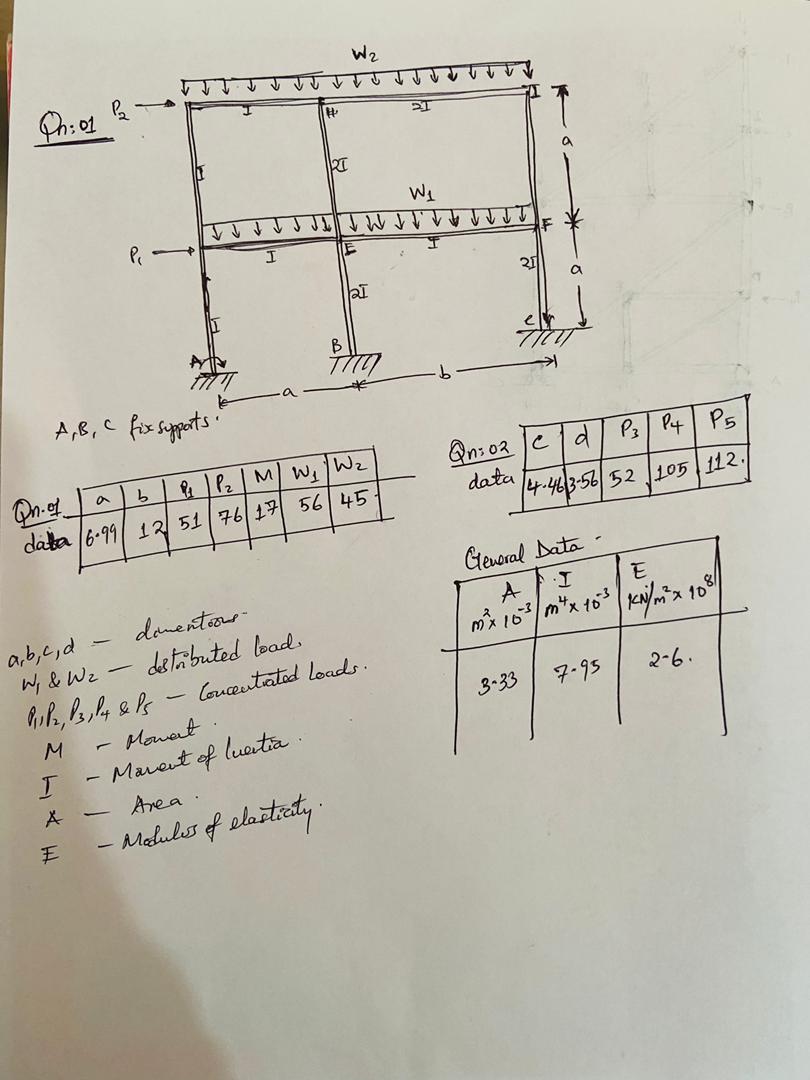 W2
Qn:01
P2
I
H
2I
I
a
I
2I
W1
P1
I
E
I
F
2I
a
I
2I
A
B
C
a
b
A, B, C fix supports.
Qn.01 a b P1 P2 M W1 W2
data 6.99 12 51 76 17 56 45
Qn:02 c d P3 P4 P5
data 4.46 3.56 52 105 112.
General Data -
A I E
m² x 10⁻³ m⁴ x 10⁻³ KN/m² x 10⁸
3.33 7.95 2.6.
a,b,c,d — dimentions-
W1 & W2 — distributed load,
P1, P2, P3, P4 & P5 — Concentrated Loads.
M - Moment.
I - Moment of Inertia.
A — Area.
E - Modulus of elasticity.